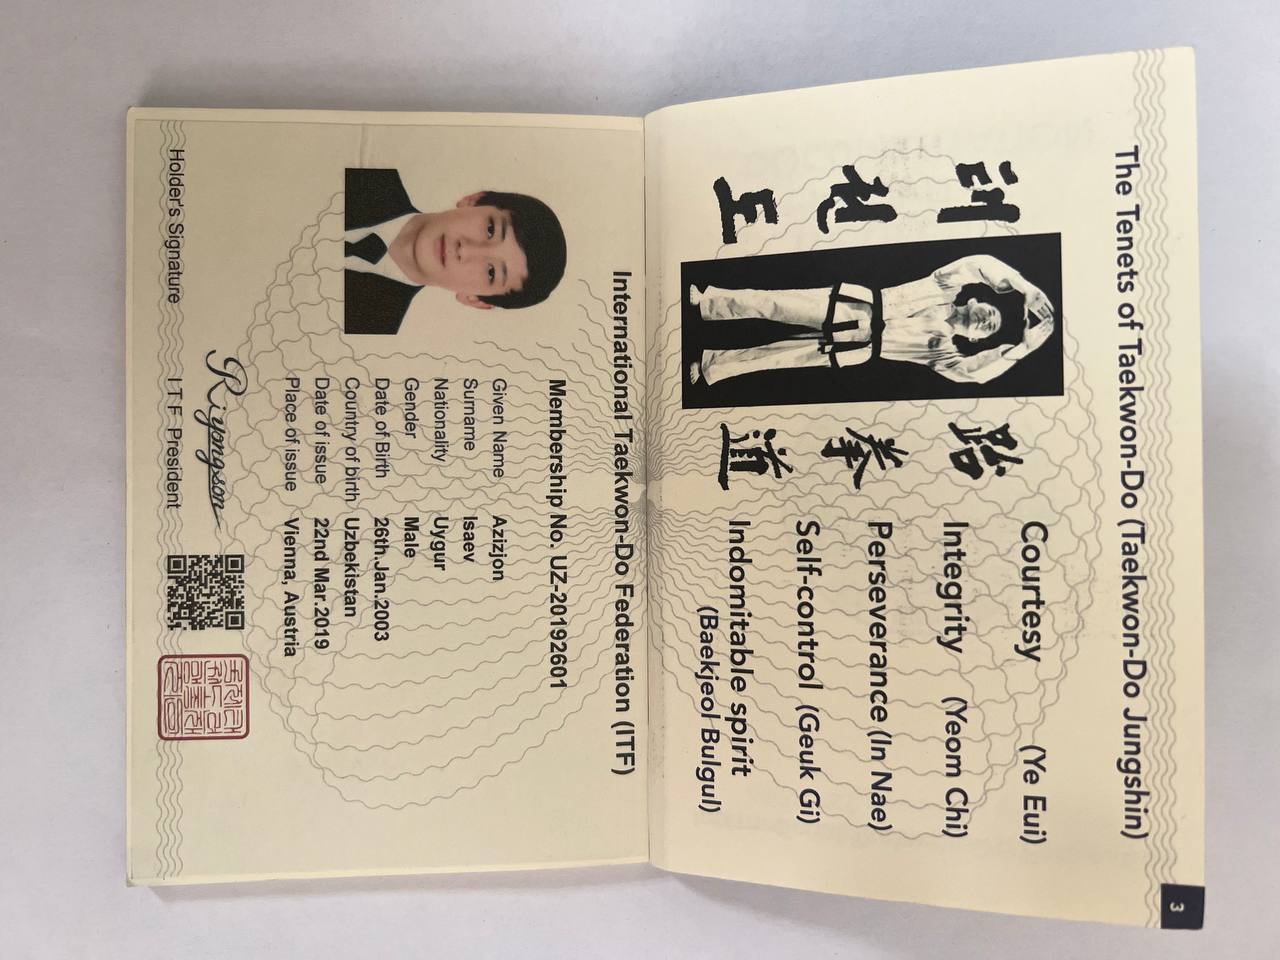 The Tenets of Taekwon-Do (Taekwon-Do Jungshin)
태권도
跆拳道
Courtesy (Ye Eui)
Integrity (Yeom Chi)
Perseverance (In Nae)
Self-control (Geuk Gi)
Indomitable spirit
(Baekjeol Bulgul)
3
International Taekwon-Do Federation (ITF)
Membership No. UZ-20192601
Given Name Azizjon
Surname Isaev
Nationality Uygur
Gender Male
Date of Birth 26th.Jan.2003
Country of birth Uzbekistan
Date of issue 22nd Mar.2019
Place of issue Vienna, Austria
Riyongson
Holder's Signature I T F President